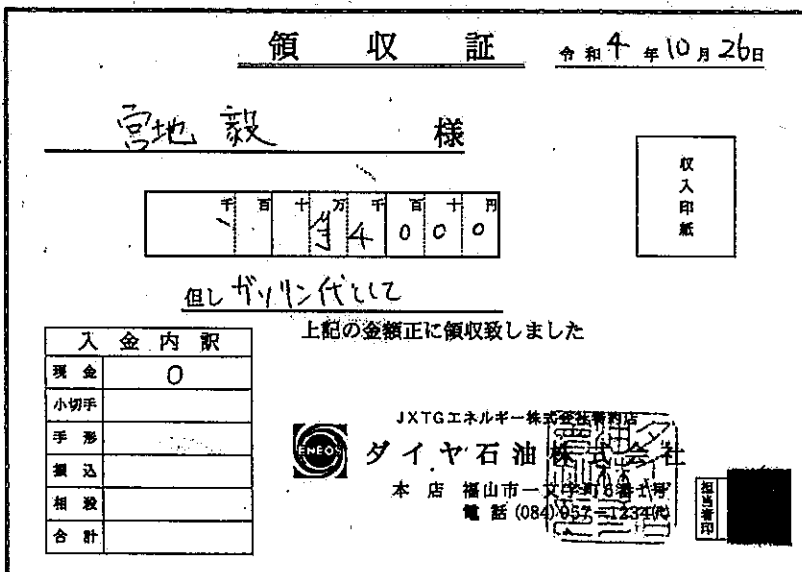 領収証
令和4年10月26日
宮地 毅 様
収入印紙
千百十万千百十円
¥4000
但し ガソリン代として
上記の金額正に領収致しました
入金内訳
現金 0
小切手
手形
振込
相殺
合計
JXTGエネルギー株式会社特約店
ENEOS
ダイヤ石油株式会社
本店 福山市一文字町8番1号
電話(084)957-1234(代)
担当者印